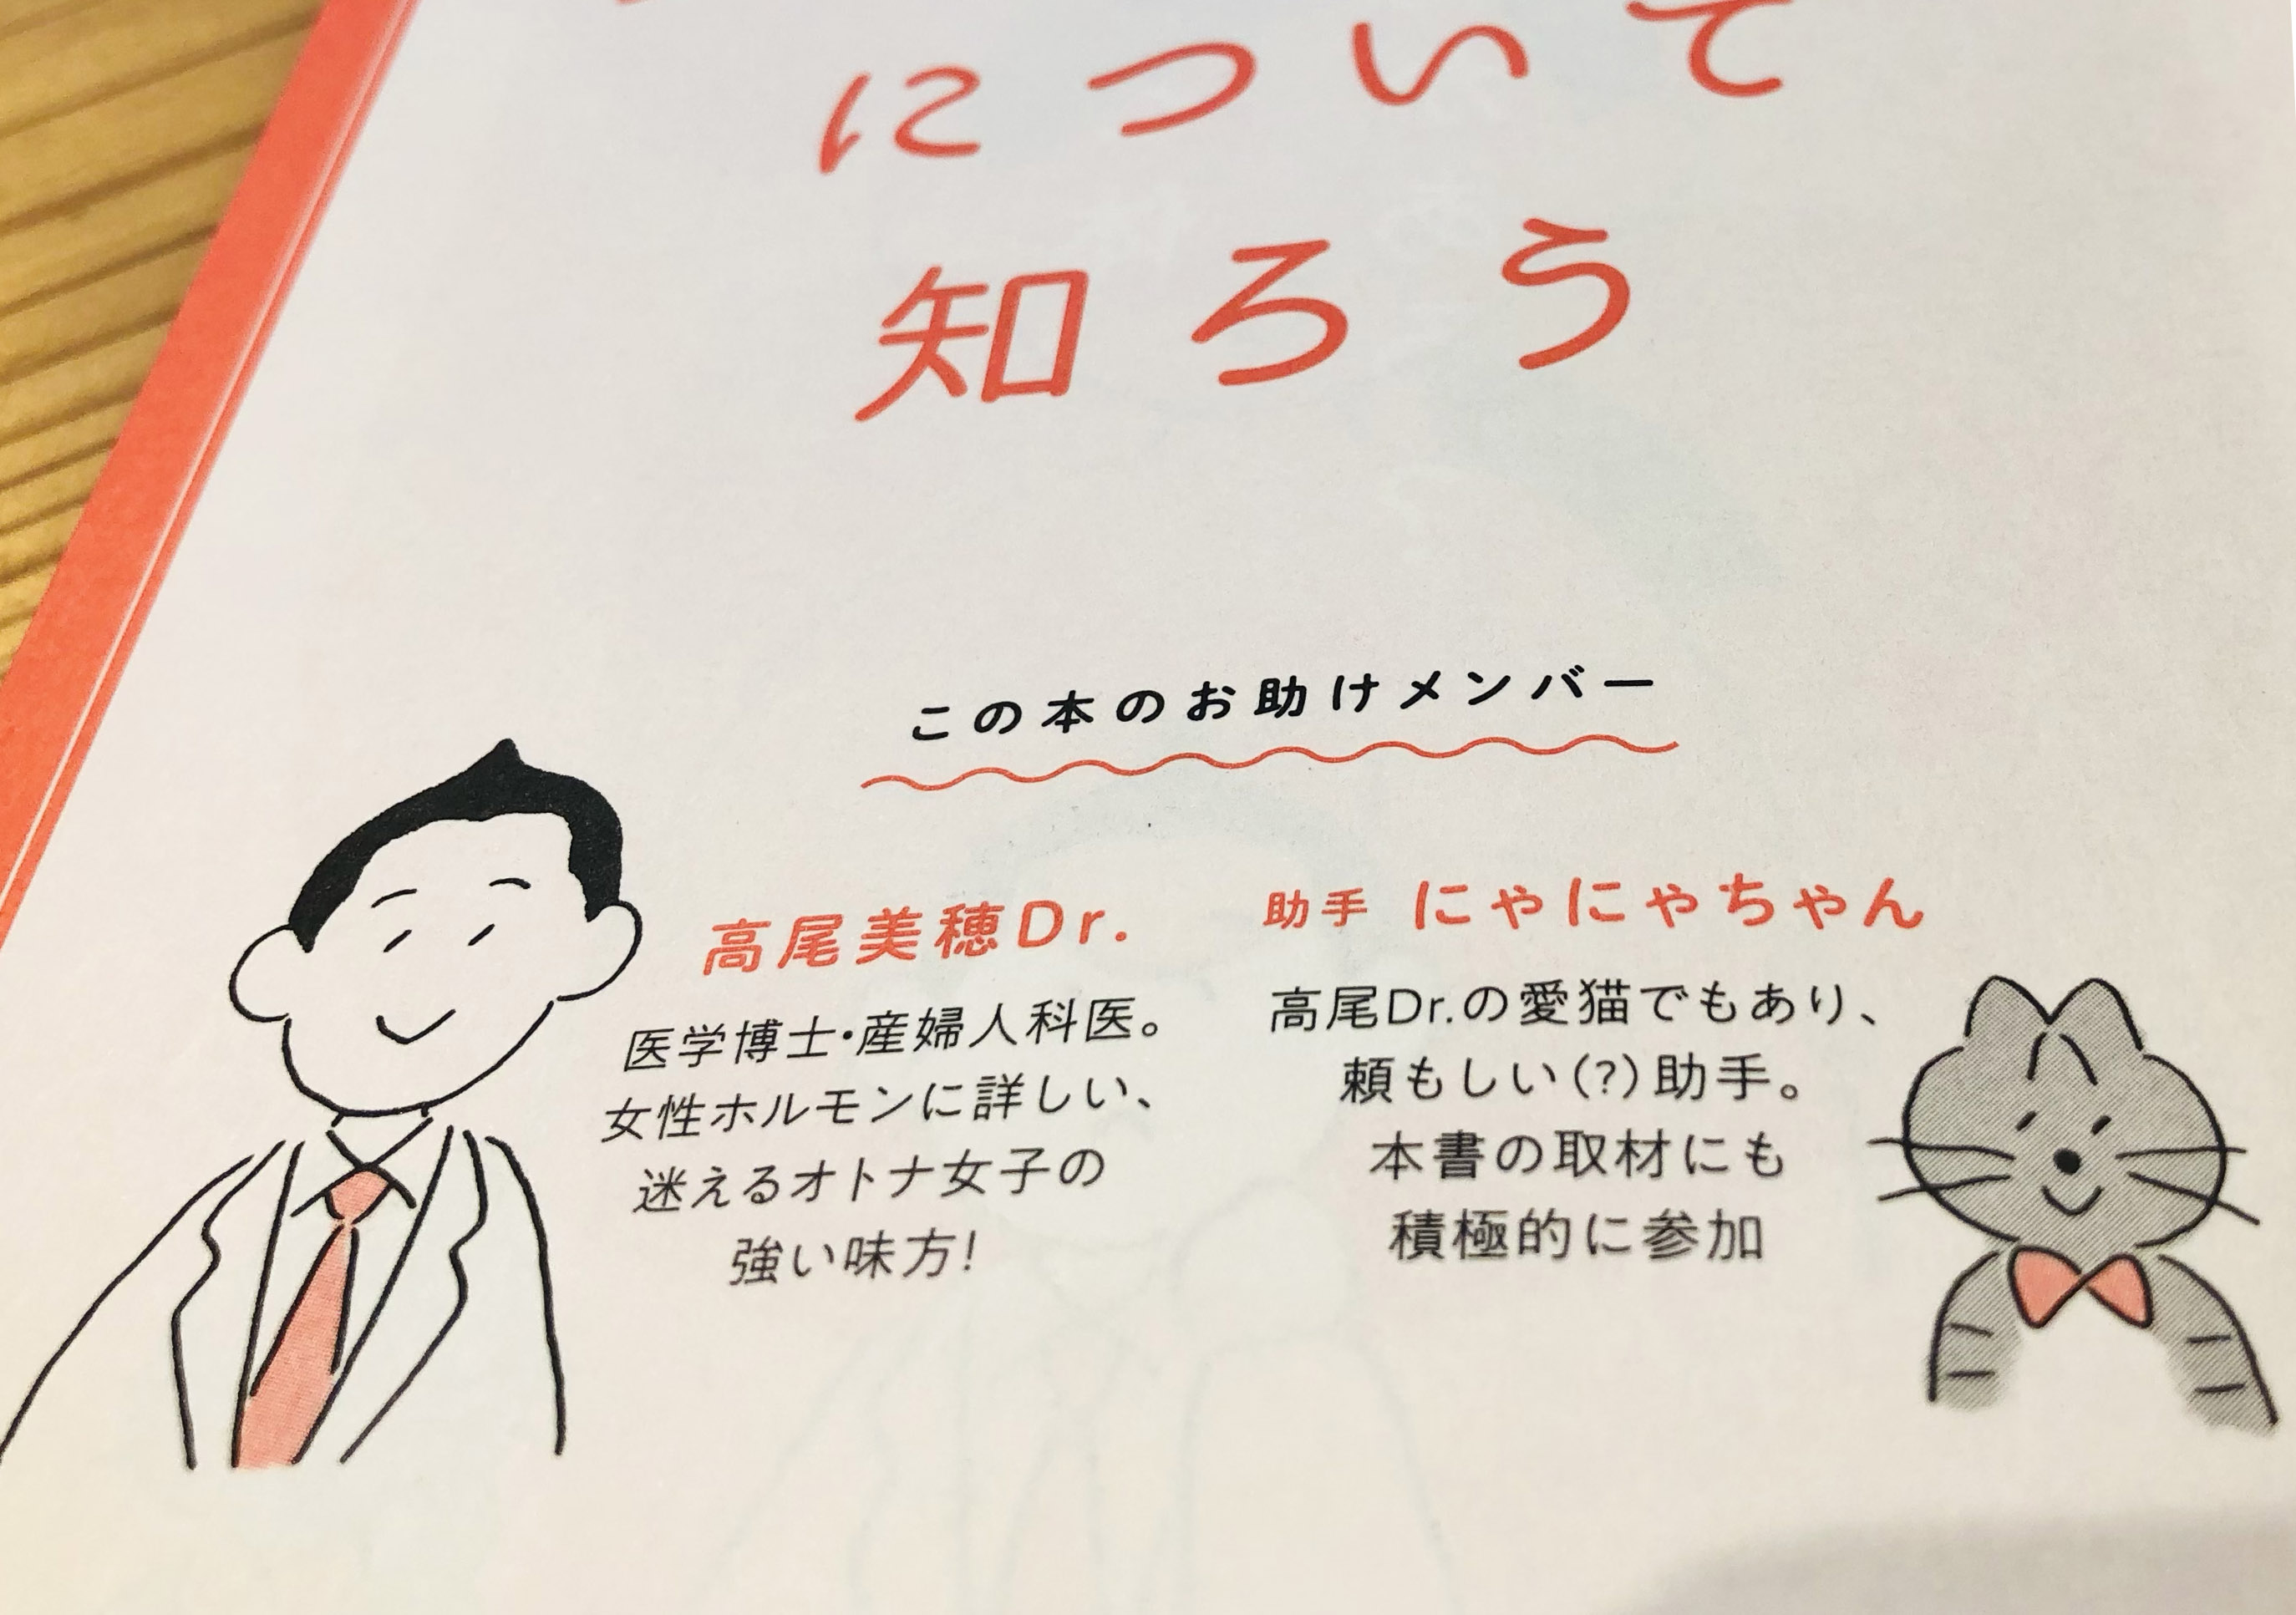 について
知ろう
この本のお助けメンバー
高尾美穂Dr.
医学博士・産婦人科医。
女性ホルモンに詳しい、
迷えるオトナ女子の
強い味方！
助手 にゃにゃちゃん
高尾Dr.の愛猫でもあり、
頼もしい（？）助手。
本書の取材にも
積極的に参加